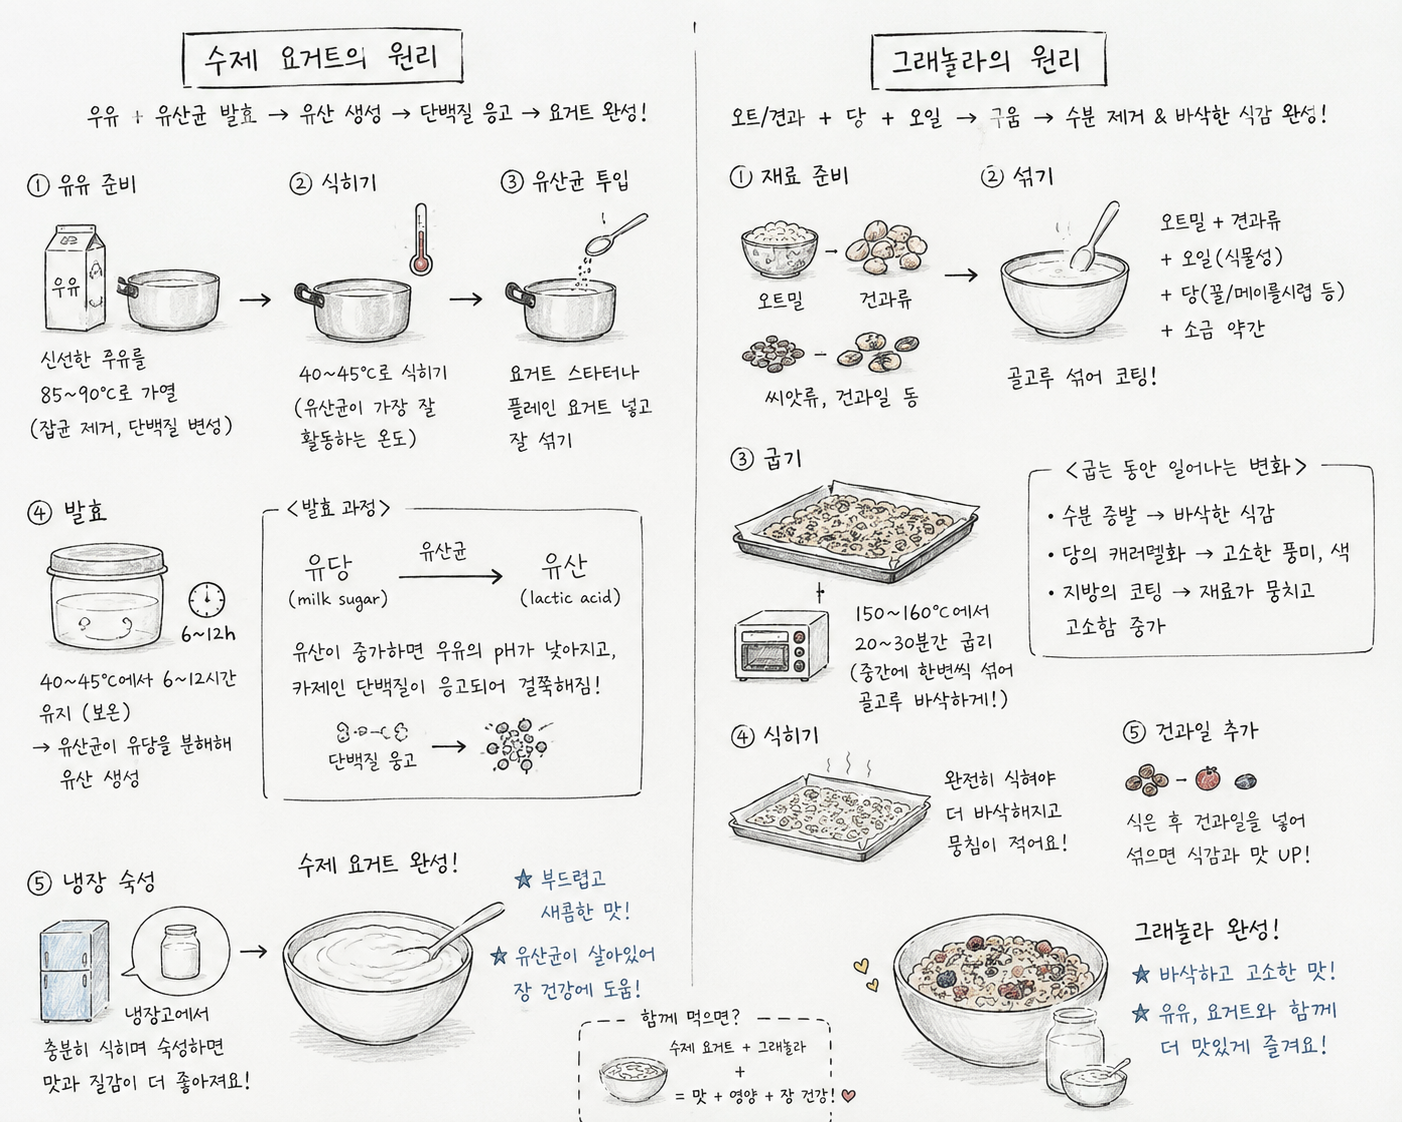 수제 요거트의 원리
우유 + 유산균 발효 → 유산 생성 → 단백질 응고 → 요거트 완성!
① 유유 준비
우유
신선한 주유를
85~90℃로 가열
(잡균 제거, 단백질 변성)
② 식히기
40~45℃로 식히기
(유산균이 가장 잘
활동하는 온도)
③ 유산균 투입
요거트 스타터나
플레인 요거트 넣고
잘 섞기
④ 발효
6~12h
40~45℃에서 6~12시간
유지 (보온)
→ 유산균이 유당을 분해해
유산 생성
<발효 과정>
유당
(milk sugar)
유산균
유산
(lactic acid)
유산이 증가하면 우유의 pH가 낮아지고,
카제인 단백질이 응고되어 걸쭉해짐!
단백질 응고
⑤ 냉장 숙성
냉장고에서
충분히 식히며 숙성하면
맛과 질감이 더 좋아져요!
수제 요거트 완성!
★ 부드럽고
새콤한 맛!
★ 유산균이 살아있어
장 건강에 도움!
그래놀라의 원리
오트/견과 + 당 + 오일 → 구움 → 수분 제거 & 바삭한 식감 완성!
① 재료 준비
오트밀
견과류
씨앗류, 건과일 등
② 섞기
오트밀 + 견과류
+ 오일(식물성)
+ 당(꿀/메이플시럽 등)
+ 소금 약간
골고루 섞어 코팅!
③ 굽기
150~160℃에서
20~30분간 굽리
(중간에 한변씩 섞어
골고루 바삭하게!)
<굽는 동안 일어나는 변화>
• 수분 증발 → 바삭한 식감
• 당의 캐러멜화 → 고소한 풍미, 색
• 지방의 코팅 → 재료가 뭉치고
고소함 증가
④ 식히기
완전히 식혀야
더 바삭해지고
뭉침이 적어요!
⑤ 건과일 추가
식은 후 건과일을 넣어
섞으면 식감과 맛 UP!
그래놀라 완성!
★ 바삭하고 고소한 맛!
★ 유유, 요거트와 함께
더 맛있게 즐겨요!
함께 먹으면?
수제 요거트 + 그래놀라
+
= 맛 + 영양 + 장 건강!